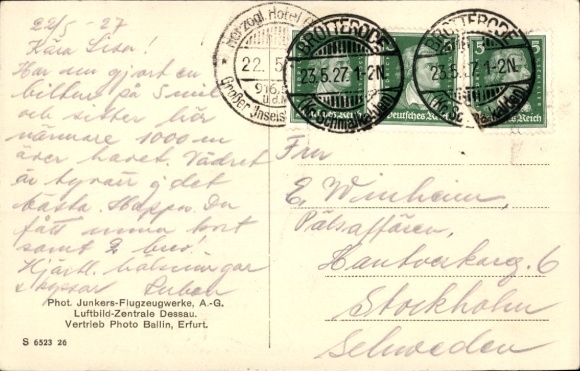 22/5 - 27
Kära Lisa!
Har nu gjort en
biltur på 5 mil
och sitter här
närmare 1000 m
över havet. Vädret
är tyvärr ej det
bästa. Hoppas Du
fått mina kort
samt 2 brev!
Hjärtl. hälsningar
Phot. Junkers-Flugzeugwerke, A.-G.
Luftbild-Zentrale Dessau.
Vertrieb Photo Ballin, Erfurt.
S 6523 26
Herzogl. Hotel
22. 5
916,5
ü.d.M
Großer Inselsb
BROTTERODE
23.5.27. 1-2N.
(Kr. Schmalkalden)
BROTTERODE
23.5.27. 1-2N.
5 5
Deutsches Reich
Reich
Fru
E. Winheim,
Pälsaffären,
Hantverkareg. 6
Stockholm
Schweden